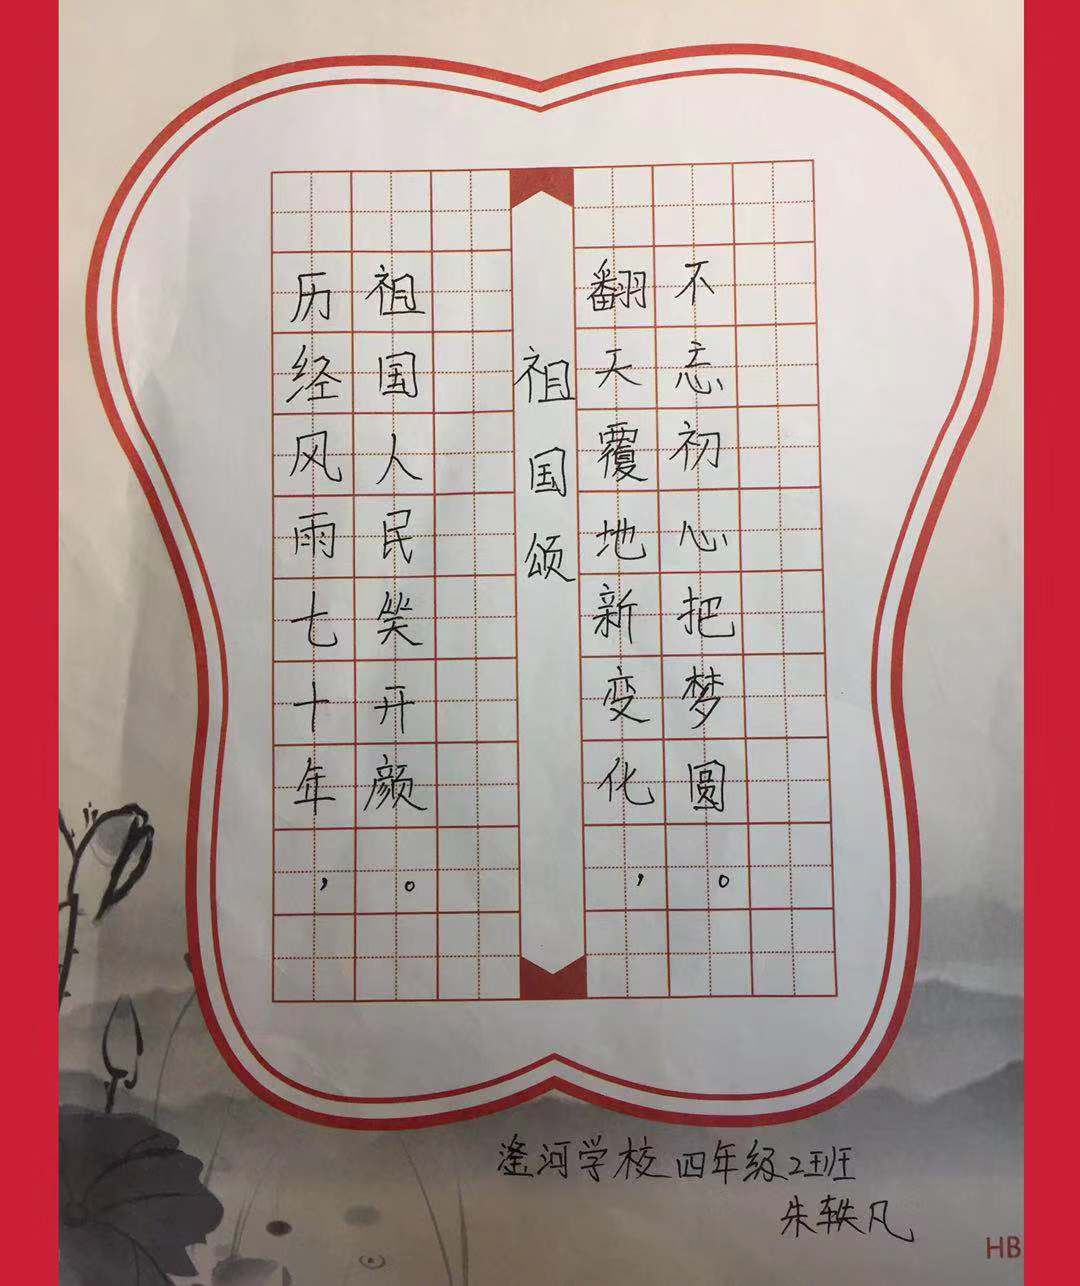 祖国颂
历经风雨七十年，
祖国人民笑开颜。
翻天覆地新变化，
不忘初心把梦圆。
滏河学校四年级2班
朱轶凡
HB